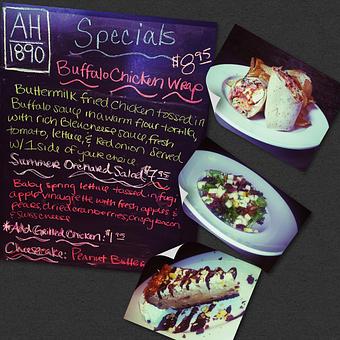 AH
1890
Specials
$8.95
Buffalo Chicken Wrap
Buttermilk fried chicken tossed in
Buffalo sauce in a warm flour tortilla,
with rich Bleucheese sauce, fresh
tomato, lettuce, & Red onion. Served
w/ 1 side of your choice
Summer Orchard Salad $7.95
Baby spring lettuce tossed in fuji
apple vinaigrette with fresh apples &
pears, dried cranberries, crispy bacon
& swiss cheese
*Add Grilled Chicken: $1.95
Cheesecake: Peanut Butter